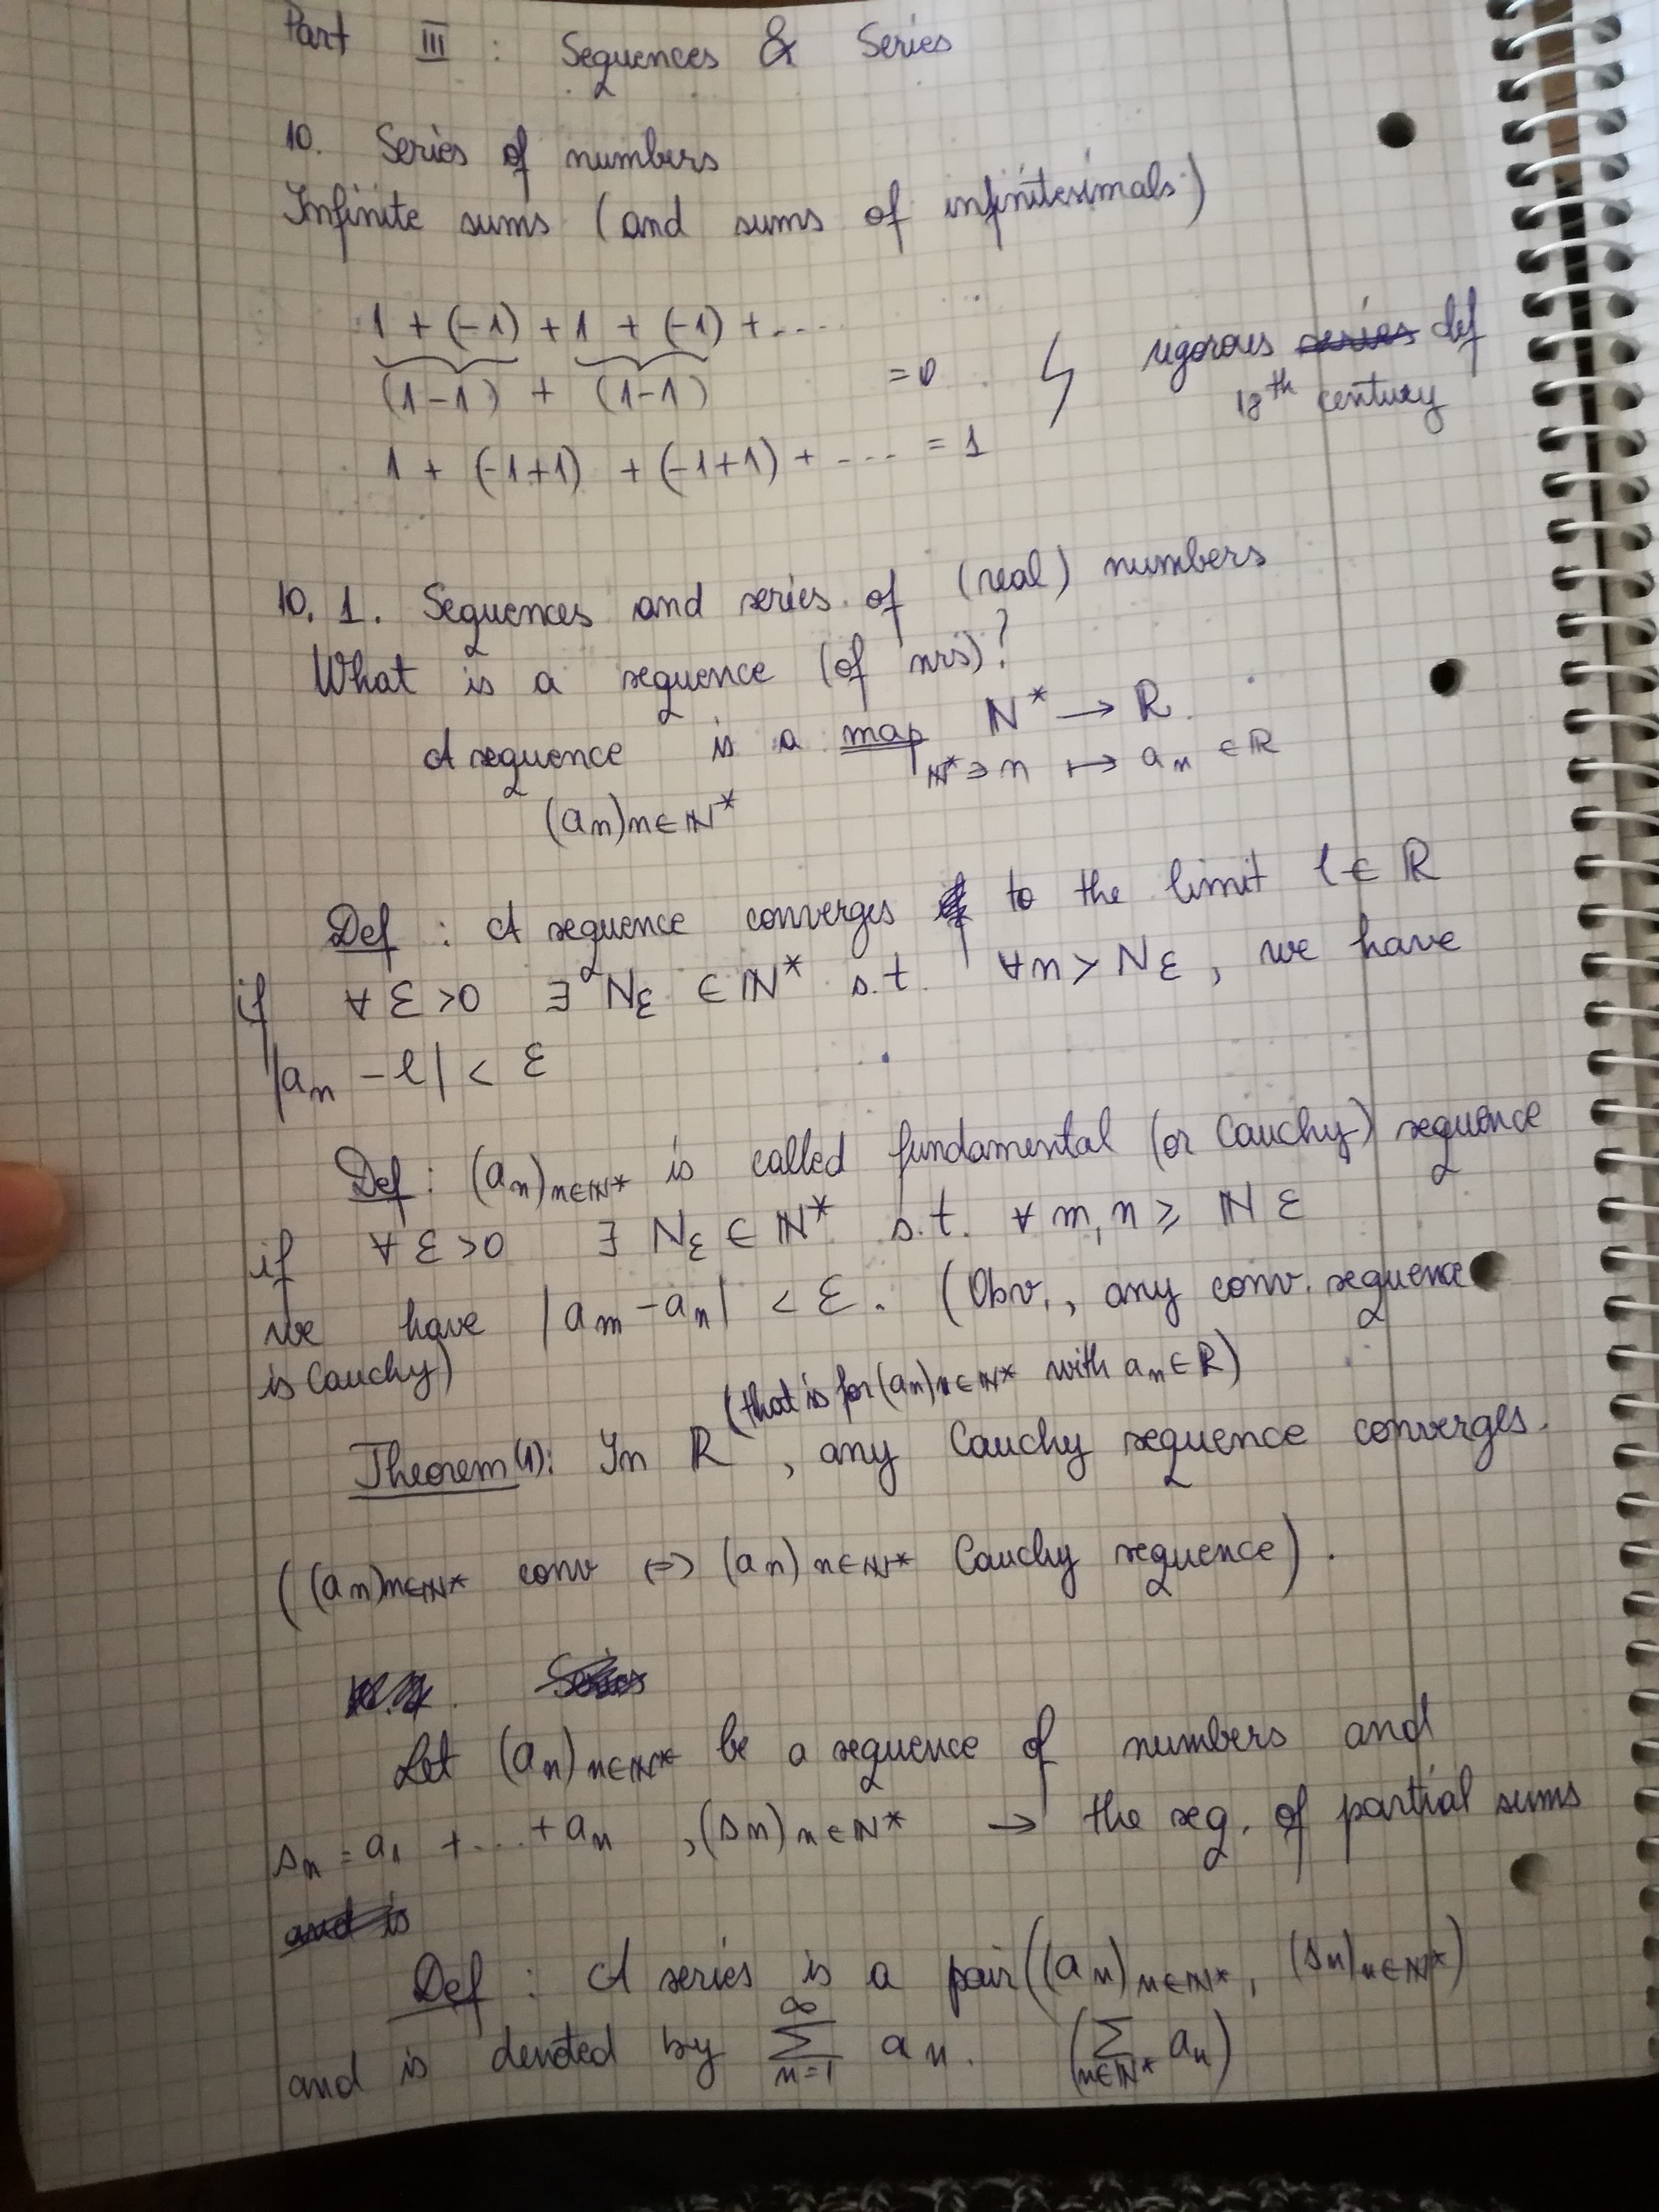 Part III : Sequences & Series
10. Series of numbers
Infinite sums (and sums of infinitesimals)
1 + (-1) + 1 + (-1) + ....
(1-1) + (1-1) = 0 ↯ rigorous series def
18th century
1 + (-1+1) + (-1+1) + .... = 1
10.1. Sequences and series of (real) numbers
What is a sequence (of nrs)?
A sequence is a map ℕ* → ℝ.
ℕ* ∋ n ↦ aₙ ∈ ℝ
(aₙ)n∈ℕ*
Def : A sequence converges to the limit l ∈ ℝ
if ∀ ε < 0 ∃ Nε ∈ ℕ* s.t. ∀n > Nε, we have
|aₙ - l| < ε
Def : (aₙ)n∈ℕ* is called fundamental (or Cauchy) sequence
if ∀ ε > 0 ∃ Nε ∈ ℕ* s.t. ∀ m, n ⩾ ℕε
we have |aₘ - aₙ| < ε. (Obv., any conv. sequence
is Cauchy)
(that is for (aₙ)n∈ℕ* with aₙ ∈ ℝ)
Theorem (1): In ℝ , any Cauchy sequence converges.
((aₙ)n∈ℕ* conv ⇔ (aₙ)n∈ℕ* Cauchy sequence).
Series
Let (aₙ)n∈ℕ* be a sequence of numbers and
sₙ = a₁ + ... + aₙ , (sₙ)n∈ℕ* → the seq. of partial sums
and is
Def : A series is a pair ((aₙ)n∈ℕ*, (sₙ)n∈ℕ*)
and is denoted by ∑_{n=1}^{∞} aₙ. (∑_{n∈ℕ*} aₙ)